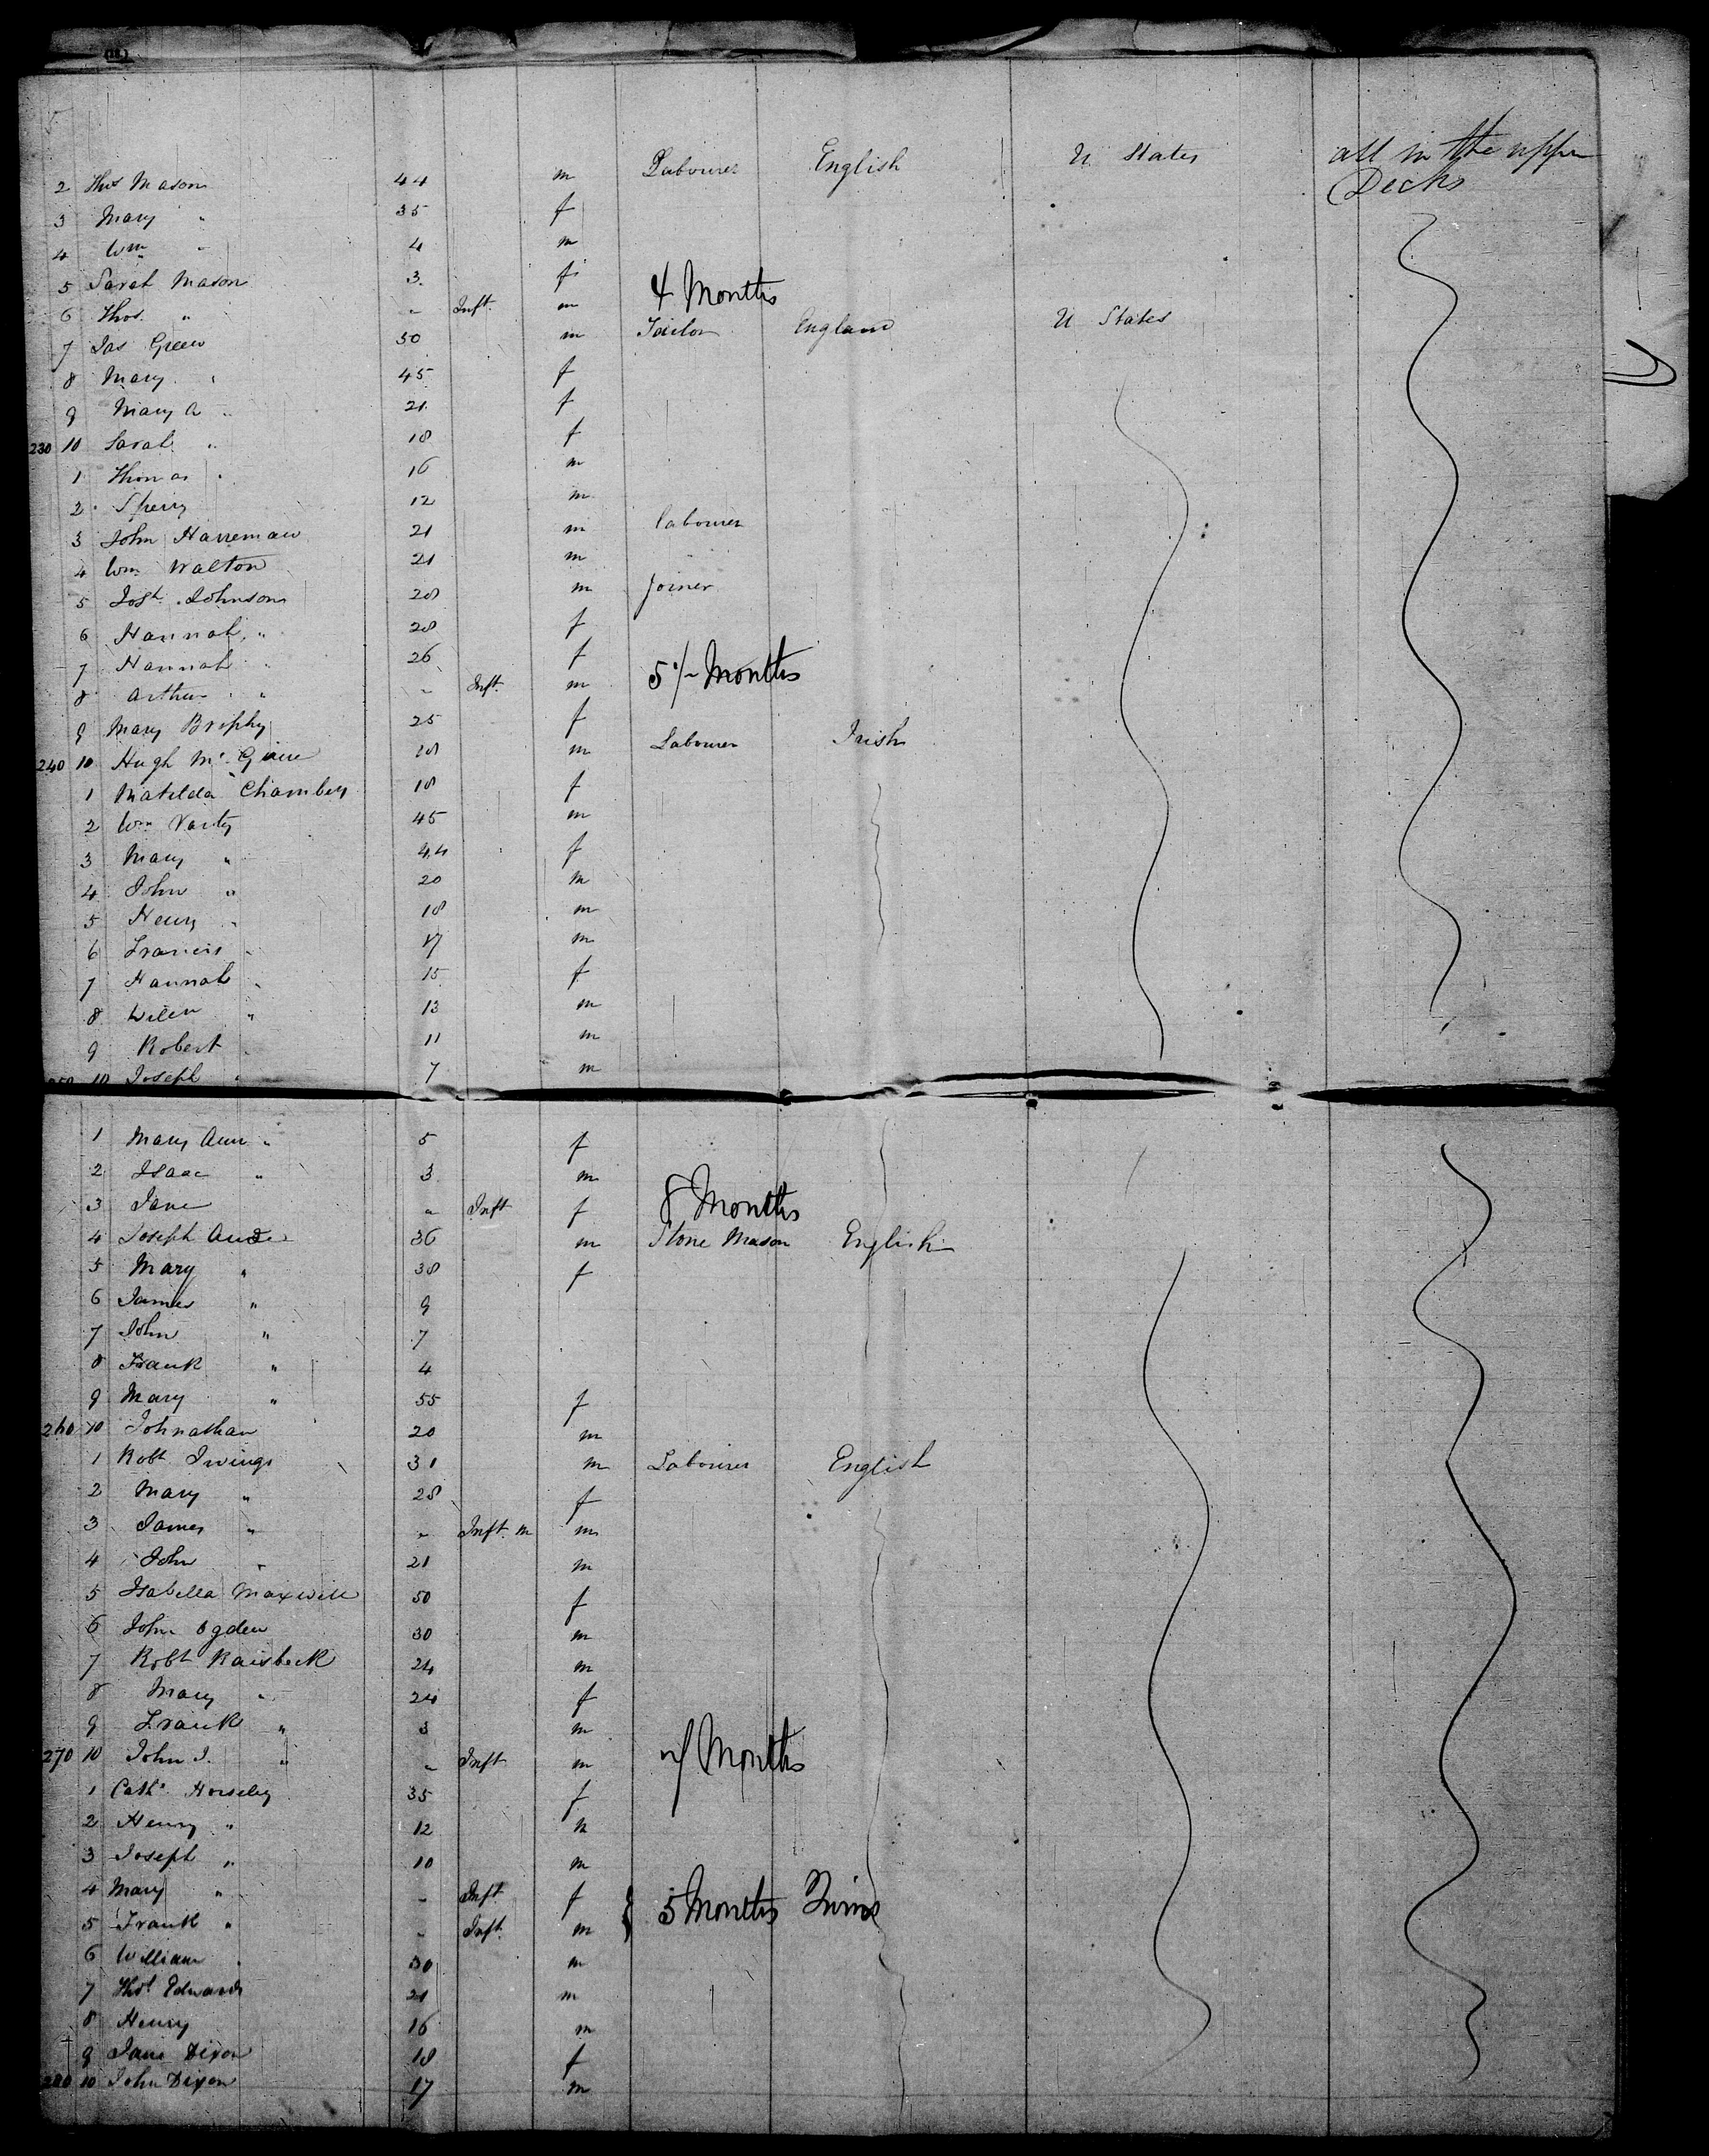 all in the upper
Decks
2 Thos Mason 44 m Labourer English U States
3 Mary " 35 f
4 Wm " 4 m
5 Sarah Mason 3 f
6 Thos. " " Inft. m 4 Months
7 Jas Green 50 m Tailor England U States
8 Mary " 45 f
9 Mary A " 21 f
230 10 Sarah " 18 f
1 Thomas " 16 m
2 12 m
3 John Harreman 21 m labourer
4 Wm Walton 21 m
5 Josh. Johnson 28 m Joiner
6 Hannah " 28 f
7 Hannah " 26 f
8 Arthur " " Inft. m 5 Months
9 Mary Brophy 25 f
240 10 Hugh Mc 18 m Labourer Irish
1 Matilda Chambers 18 f
2 Wm Varty 45 m
3 Mary " 44 f
4 John " 20 m
5 Henry " 18 m
6 Francis " 17 m
7 Hannah " 15 f
8 " 13 m
9 Robert " 11 m
250 10 Joseph " 7 m
1 Mary Ann " 5 f
2 Isaac " 3 m
3 Jane " Inft f 8 Months
4 Joseph 36 m Stone Mason English
5 Mary " 38 f
6 James " 9
7 John " 7
8 Frank " 4
9 Mary " 55 f
260 10 Johnathan 20 m
1 Robt Irvings 31 m Labourer English
2 Mary " 28 f
3 James " " Inft. m m
4 John " 21 m
5 Isabella Maxwell 50 f
6 John Ogden 30 m
7 Robt Raisbeck 24 m
8 Mary " 24 f
9 Frank " 3 m
270 10 John J. " " Inft m Months
1 Cath. Horseley 35 f
2 Henry " 12 m
3 Joseph " 10 m
4 Mary " " Inft f } 5 Months Twins
5 Frank " " Inft. m
6 William " 30 m
7 Thos Edwards 21 m
8 Henry 16 m
9 Jane Dixon 18 f
280 10 John Dixon 17 m